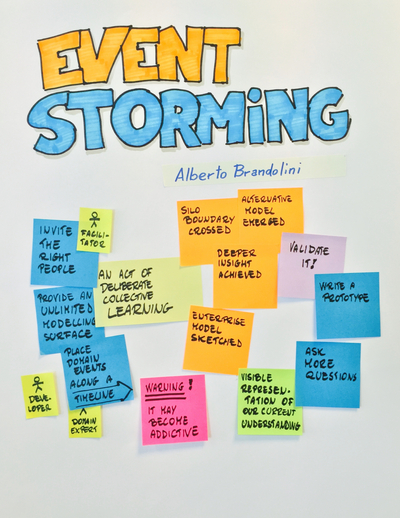 EVENT
STORMING
Alberto Brandolini
INVITE
THE
RIGHT
PEOPLE
FACILI-
TATOR
PROVIDE AN
UNLIMITED
MODELLING
SURFACE
PLACE
DOMAIN
EVENTS
ALONG A
TIMELINE
DEVE-
LOPER
DOMAIN
EXPERT
AN ACT OF
DELIBERATE
COLLECTIVE
LEARNING
SILO
BOUNDARY
CROSSED
ALTERNATIVE
MODEL
EMERGED
DEEPER
INSIGHT
ACHIEVED
ENTERPRISE
MODEL
SKETCHED
VALIDATE
IT!
WRITE A
PROTOTYPE
ASK
MORE
QUESTIONS
WARNING!
IT MAY
BECOME
ADDICTIVE
VISIBLE
REPRESEN-
TATION OF
OUR CURRENT
UNDERSTANDING